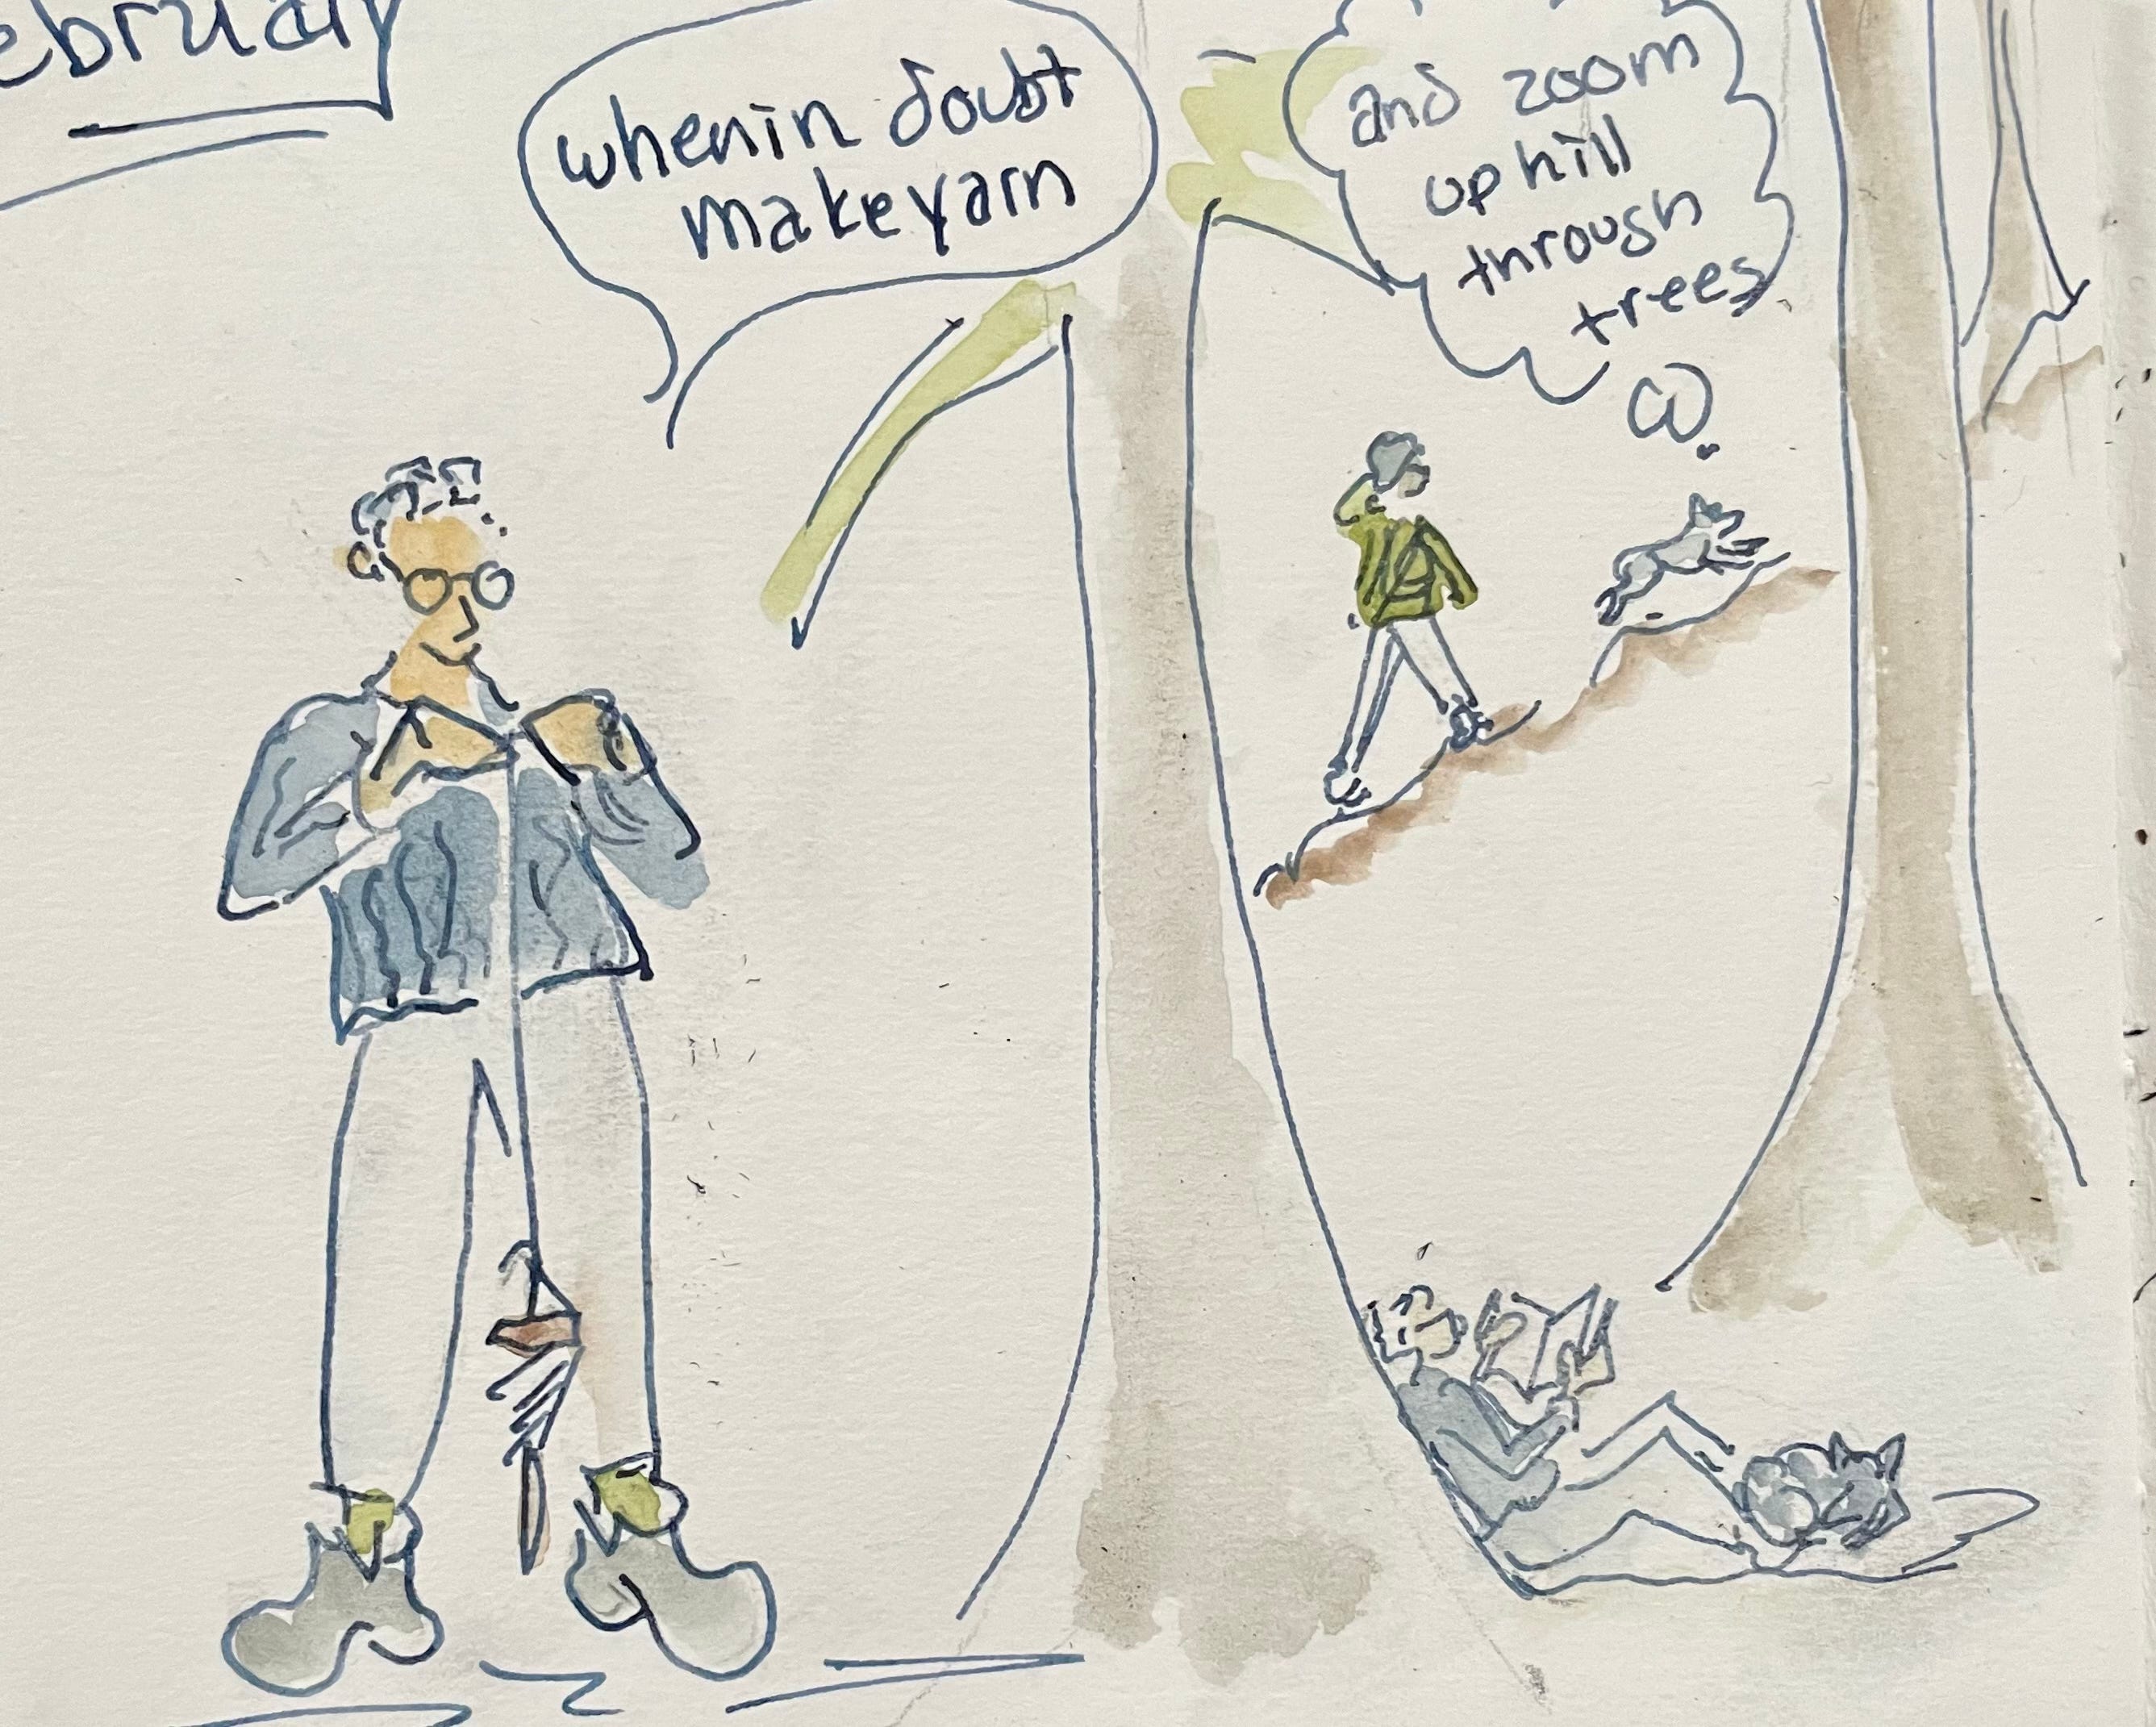 ebruary
when in doubt
make yarn
and zoom
up hill
through
trees